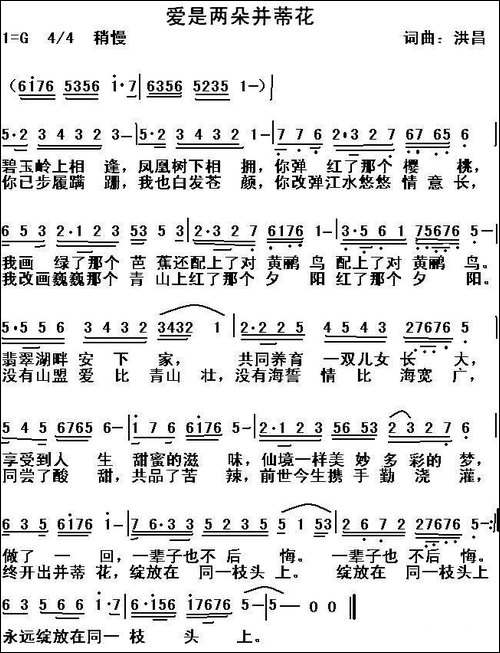 爱是两朵并蒂花
1=G 4/4 稍慢 词曲：洪昌
（6i76 5356 i·7 | 6356 5235 1-）|
5·2 3 4 3 2 3- | 5·2 3 4 3 2 1- | 7 7 6 2·3 2 7 67 65 6 |
碧玉岭上相 逢，凤凰树下相 拥，你弹 红了那个 樱 桃，
你已步履蹒 跚，我也白发苍 颜，你改弹江水悠悠 情 意 长，
6 5 3 2·1 2 3 53 5 3 | 2·3 2 7 6176 1- | 3·5 6 1 75676 5- |
我画 绿了那个 芭 蕉还配上了对 黄鹂 鸟 配上了对 黄鹂 鸟。
我改画巍巍那个 青 山上红了那个 夕 阳 红了那个 夕 阳。
5·5 5 6 3 4 3 2 3432 1 | 2·2 2 5 4 5 4 3 27676 5 |
翡翠湖畔 安 下 家， 共同养育 一双儿女 长 大，
没有山盟 爱 比 青山 壮，没有海誓 情 比 海宽 广，
5 4 5 6765 6- | i 7 6 i 7 6 5 6- | 2·1 2 3 56 53 2 3 2- |
享受到人 生 甜蜜的滋 味，仙境一样美 妙 多 彩的 梦，
同尝了酸 甜，共品了苦 辣，前世今生携 手 勤 浇 灌，
6 3 5 6i76 i- | 7 6·3 5 2 3 5 1 53 | 2 6 7 2 27676 5- :|
做了 一 回，一辈子也 不 后 悔。 一辈子也不 后 悔。
终开出并蒂 花，绽放在 同一枝头 上。 绽放在 同一枝头上。
6 3 5 56 6 i·7 | 6·i56 i7676 5- | 5- 0 0 ‖
永远绽放在同一 枝 头 上。